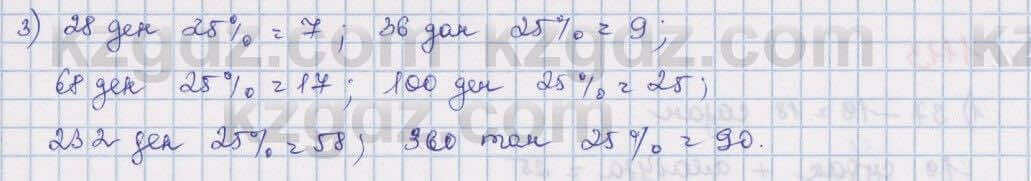 3) 28 ден 25% = 7; 36 дан 25% = 9;
68 ден 25% = 17; 100 ден 25% = 25;
232 ден 25% = 58; 360 тан 25% = 90.
kzgdz.com kzgdz.com
kzgdz.com